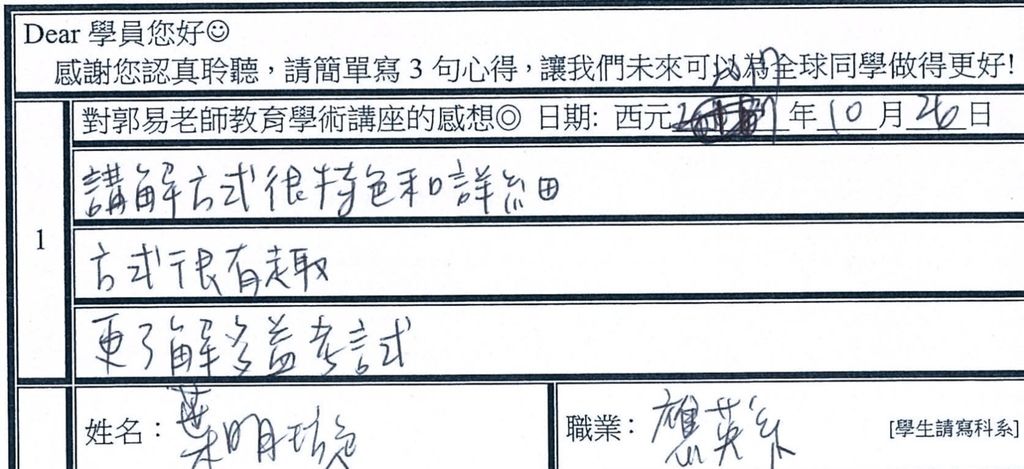 Dear 學員您好☺
感謝您認真聆聽，請簡單寫 3 句心得，讓我們未來可以為全球同學做得更好!
對郭易老師教育學術講座的感想◎ 日期: 西元 年 10 月 26 日
1
講解方式很特色和詳細
方式很有趣
更了解多益考試
姓名： 葉明
職業： 應英系 [學生請寫科系]